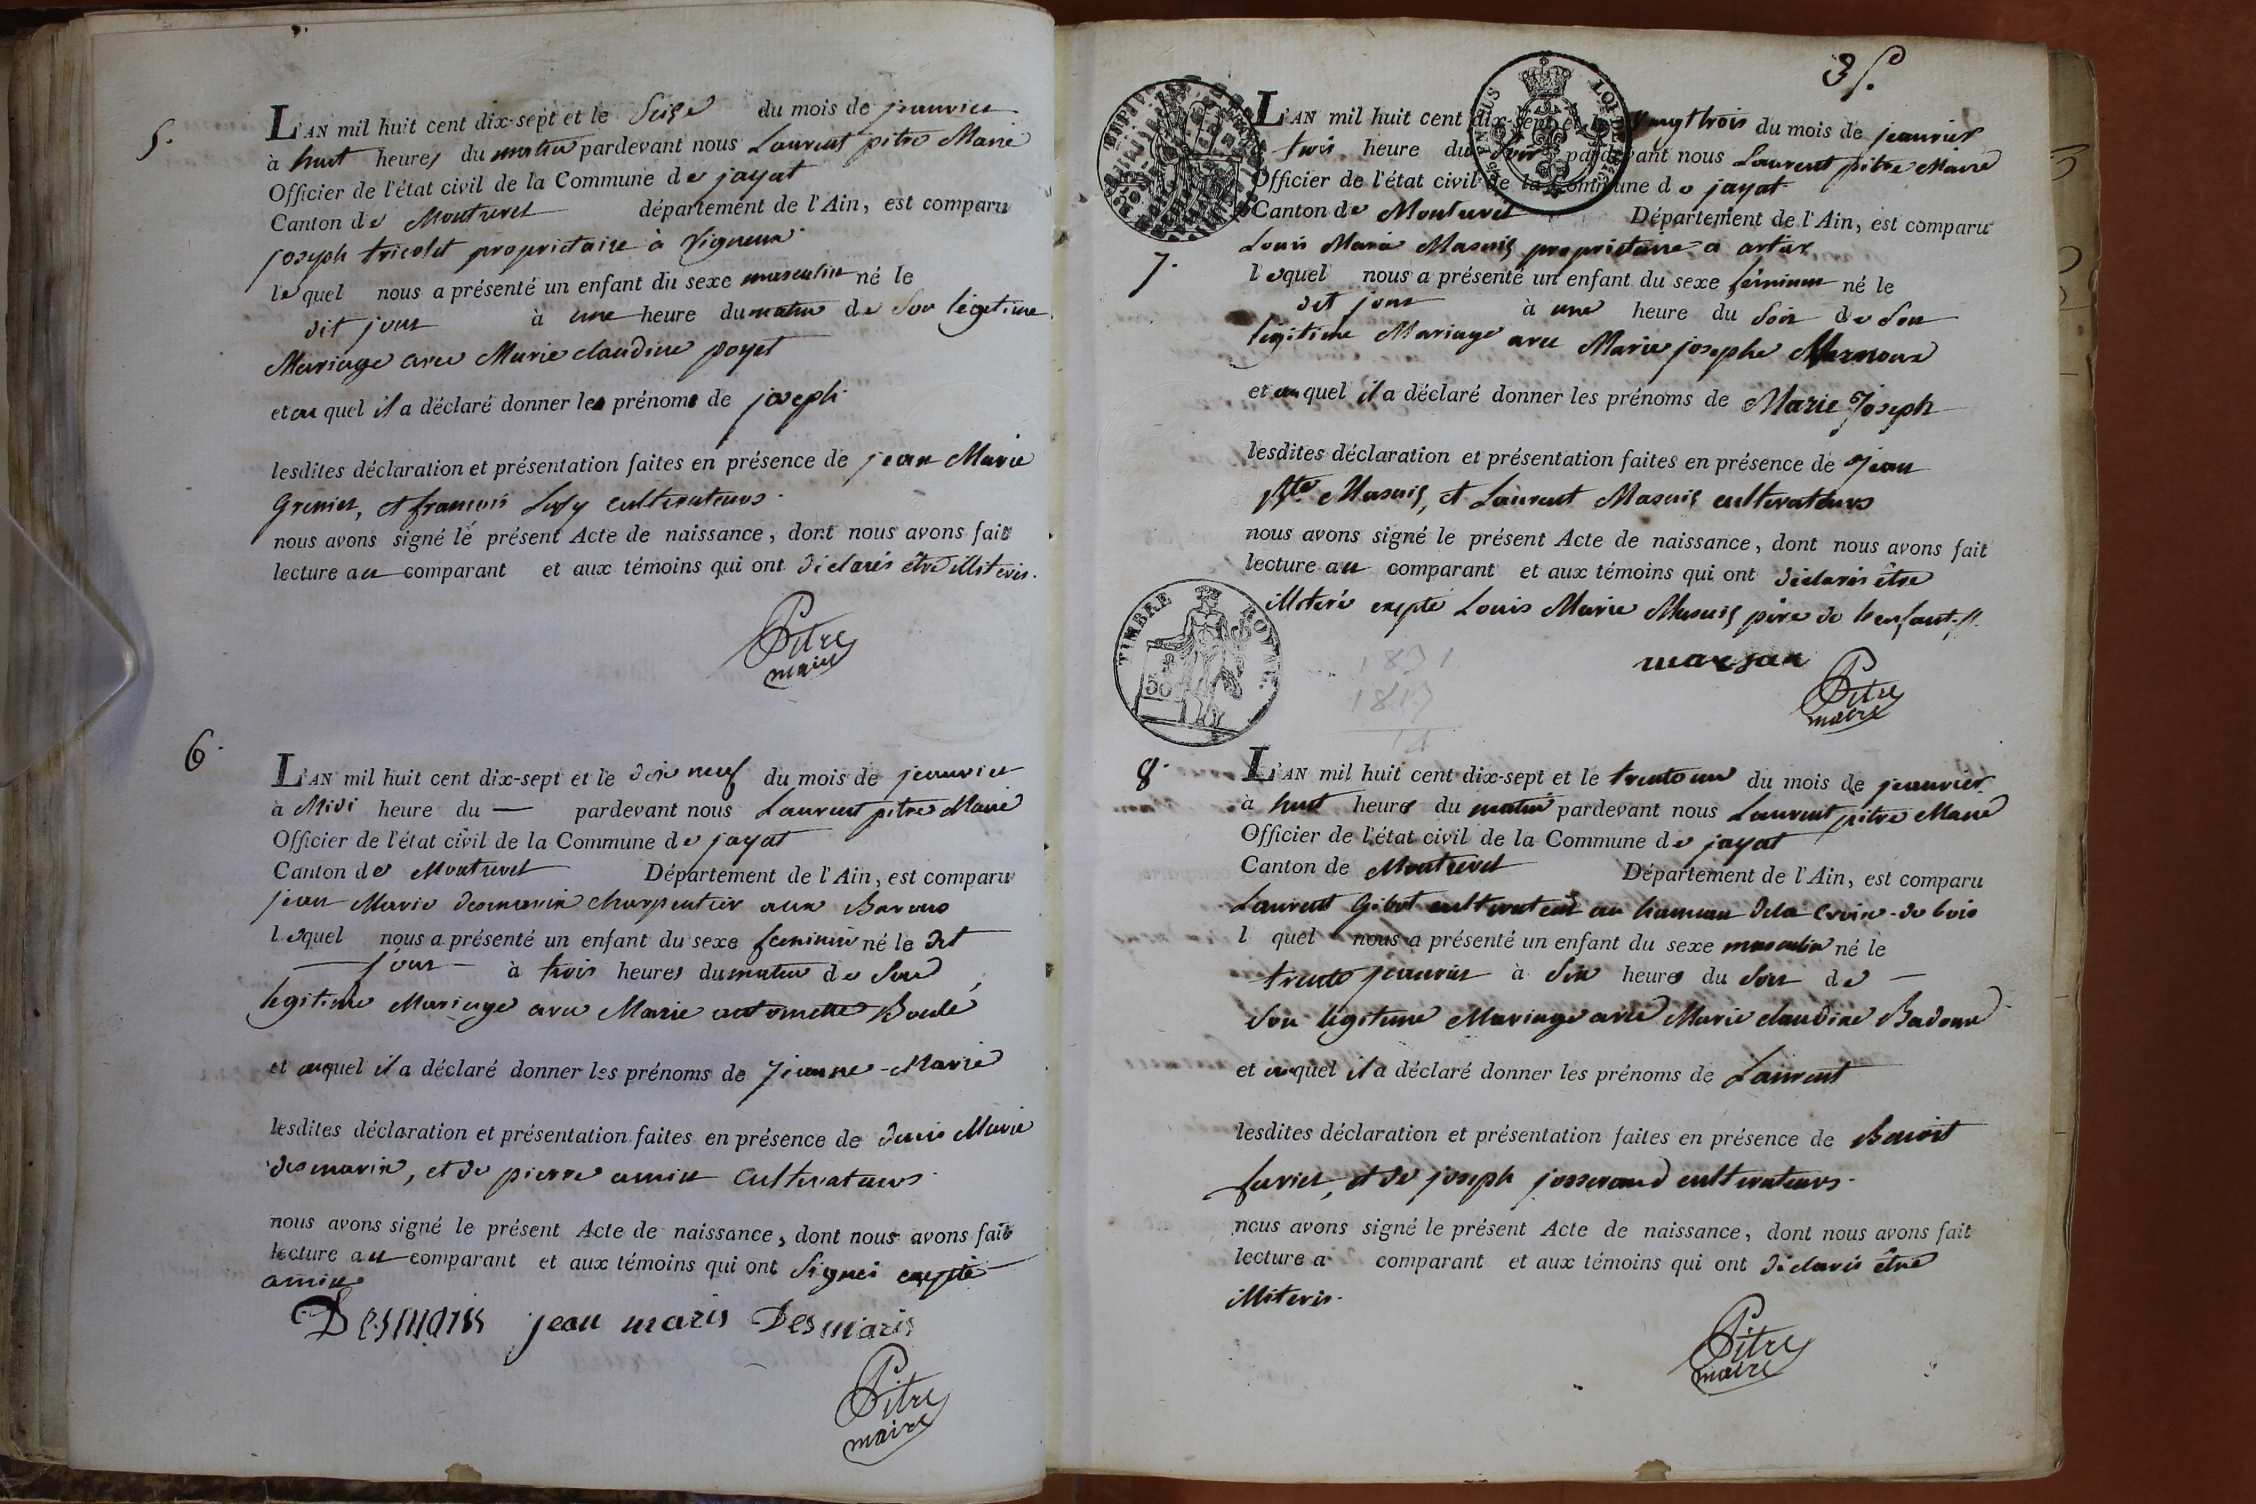 5.
L'AN mil huit cent dix-sept et le Seize du mois de jeanvier
à huit heures du matin pardevant nous Laurent pitre Maire
Officier de l'état civil de la Commune de jayat
Canton de Montrevel département de l'Ain, est comparu
joseph tricolet proprietaire à Vigneux
lequel nous a présenté un enfant du sexe masculin né le
dit jour à une heure du matin de Son légitime
Mariage avec Marie claudine poyet
et au quel il a déclaré donner les prénoms de joseph
lesdites déclaration et présentation faites en présence de jean Marie
Grenier, et francois cultivateurs.
nous avons signé le présent Acte de naissance, dont nous avons fait
lecture au comparant et aux témoins qui ont déclarés être illiteris.
Pitre
maire
6.
L'AN mil huit cent dix-sept et le dix neuf du mois de jeanvier
à Midi heure du — pardevant nous Laurent pitre Maire
Officier de l'état civil de la Commune de jayat
Canton de Montrevel Département de l'Ain, est comparu
jean Marie desmaris charpentier aux
lequel nous a présenté un enfant du sexe feminin né le dit
jour à trois heures du matin de Son
legitime Mariage avec Marie antoinette
et auquel il a déclaré donner les prénoms de Jeanne-Marie
lesdites déclaration et présentation faites en présence de denis Marie
desmaris, et de pierre cultivateurs.
nous avons signé le présent Acte de naissance, dont nous avons fait
lecture au comparant et aux témoins qui ont Signés excepté
Desmaris jean maris Desmaris
Pitre
maire
3
L'AN mil huit cent dix-sept et le Vingt trois du mois de jeanvier
trois heure du Soir pardevant nous Laurent pitre Maire
Officier de l'état civil de la Commune de jayat
Canton de Montrevel Département de l'Ain, est comparu
Louis Marie Masuis proprietaire a
7.
lequel nous a présenté un enfant du sexe féminin né le
dit jour à une heure du Soir de Son
légitime Mariage avec Marie josephe
et au quel il a déclaré donner les prénoms de Marie Joseph
lesdites déclaration et présentation faites en présence de Jean
Bte Masuis, et Laurent Masuis cultivateurs
nous avons signé le présent Acte de naissance, dont nous avons fait
lecture au comparant et aux témoins qui ont déclarés être
illiteré excpté Louis Marie Masuis père de l'enfant
TIMBRE ROYAL
50
1831
Pitre
maire
8.
L'AN mil huit cent dix-sept et le trente un du mois de jeanvier
à huit heures du matin pardevant nous Laurent pitre Maire
Officier de l'état civil de la Commune de jayat
Canton de Montrevel Département de l'Ain, est comparu
Laurent Gibot cultivateur au hameau de la Croix-de bois
l quel nous a présenté un enfant du sexe masculin né le
trente jeanvier à Six heures du Soir de —
Son légitime Mariage avec Marie claudine Badoux
et auquel il a déclaré donner les prénoms de Laurent
lesdites déclaration et présentation faites en présence de Benoit
favier, et de joseph josserand cultivateurs.
nous avons signé le présent Acte de naissance, dont nous avons fait
lecture a comparant et aux témoins qui ont déclarés être
illiteris.
Pitre
maire